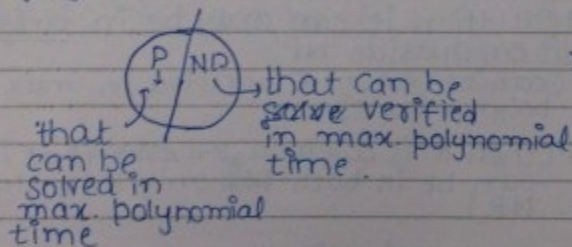 P
NP
that can be
solve verified
in max. polynomial
time.
that
can be
solved in
max. polynomial
time